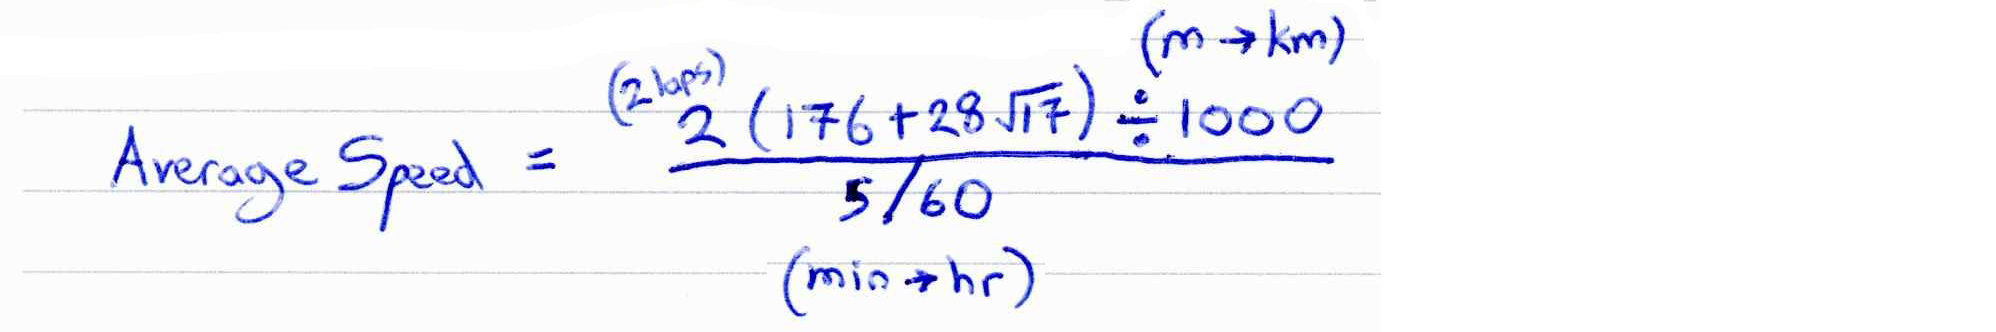 (m → km)
(2 laps)
2 (176 + 28√17) ÷ 1000
Average Speed =
5/60
(min → hr)